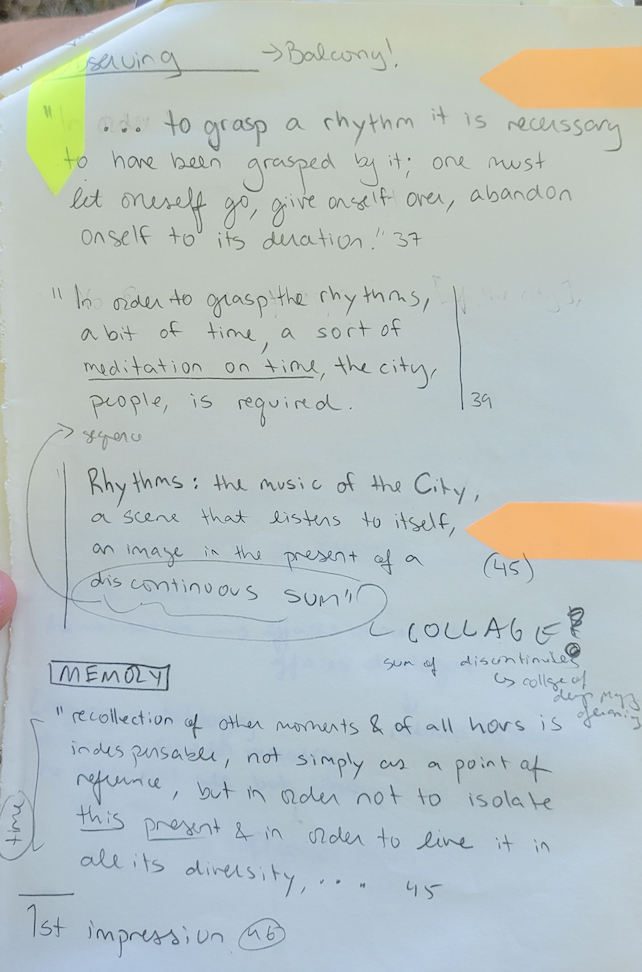 serving → Balcony!
" ... to grasp a rhythm it is necessary
to have been grasped by it; one must
let oneself go, give onself over, abandon
onself to its duration." 37
" In order to grasp the rhythms,
a bit of time, a sort of
meditation on time, the city,
people, is required.
39
Rhythms: the music of the City,
a scene that listens to itself,
an image in the present of a
(45)
discontinuous sum"
COLLAGE
sum of discontinuities
↳ collage of
MEMORY
"recollection of other moments & of all hours is
indespensable, not simply as a point of
refrence, but in order not to isolate
this present & in order to live it in
all its diversity, .... 45
time
1st impression 46